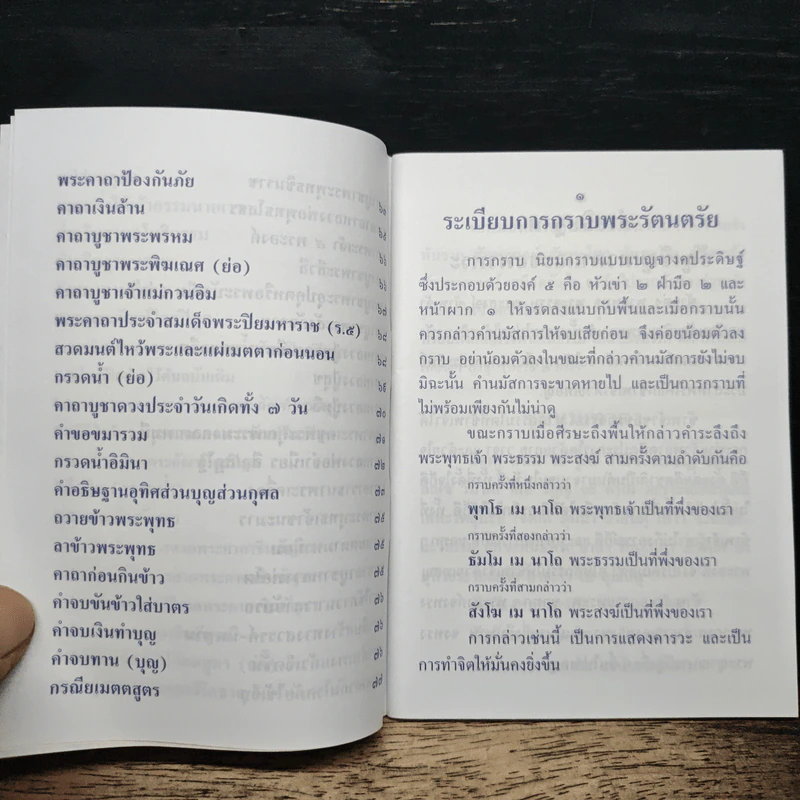 พระคาถาป้องกันภัย ๖๐
คาถาเงินล้าน ๖๕
คาถาบูชาพระพรหม ๖๖
คาถาบูชาพระพิฆเณศ (ย่อ) ๖๖
คาถาบูชาเจ้าแม่กวนอิม ๖๗
พระคาถาประจำสมเด็จพระปิยมหาราช (ร.๕) ๖๘
สวดมนต์ไหว้พระและแผ่เมตตาก่อนนอน ๖๘
กรวดน้ำ (ย่อ) ๖๙
คาถาบูชาดวงประจำวันเกิดทั้ง ๗ วัน ๗๐
คำขอขมารวม ๗๑
กรวดน้ำอิมินา ๗๒
คำอธิษฐานอุทิศส่วนบุญส่วนกุศล ๗๓
ถวายข้าวพระพุทธ ๗๕
ลาข้าวพระพุทธ ๗๕
คาถาก่อนกินข้าว ๗๕
คำจบขันข้าวใส่บาตร ๗๖
คำจบเงินทำบุญ ๗๖
คำจบทาน (บุญ) ๗๖
กรณียเมตตสูตร ๗๗
๑
ระเบียบการกราบพระรัตนตรัย
การกราบ นิยมกราบแบบเบญจางคประดิษฐ์
ซึ่งประกอบด้วยองค์ ๕ คือ หัวเข่า ๒ ฝ่ามือ ๒ และ
หน้าผาก ๑ ให้จรดลงแนบกับพื้นและเมื่อกราบนั้น
ควรกล่าวคำนมัสการให้จบเสียก่อน จึงค่อยน้อมตัวลง
กราบ อย่าน้อมตัวลงในขณะที่กล่าวคำนมัสการยังไม่จบ
มิฉะนั้น คำนมัสการจะขาดหายไป และเป็นการกราบที่
ไม่พร้อมเพียงกันไม่น่าดู
ขณะกราบเมื่อศีรษะถึงพื้นให้กล่าวคำระลึงถึง
พระพุทธเจ้า พระธรรม พระสงฆ์ สามครั้งตามลำดับกันคือ
กราบครั้งที่หนึ่งกล่าวว่า
พุทโธ เม นาโถ พระพุทธเจ้าเป็นที่พึ่งของเรา
กราบครั้งที่สองกล่าวว่า
ธัมโม เม นาโถ พระธรรมเป็นที่พึ่งของเรา
กราบครั้งที่สามกล่าวว่า
สังโฆ เม นาโถ พระสงฆ์เป็นที่พึ่งของเรา
การกล่าวเช่นนี้ เป็นการแสดงคารวะ และเป็น
การทำจิตให้มั่นคงยิ่งขึ้น